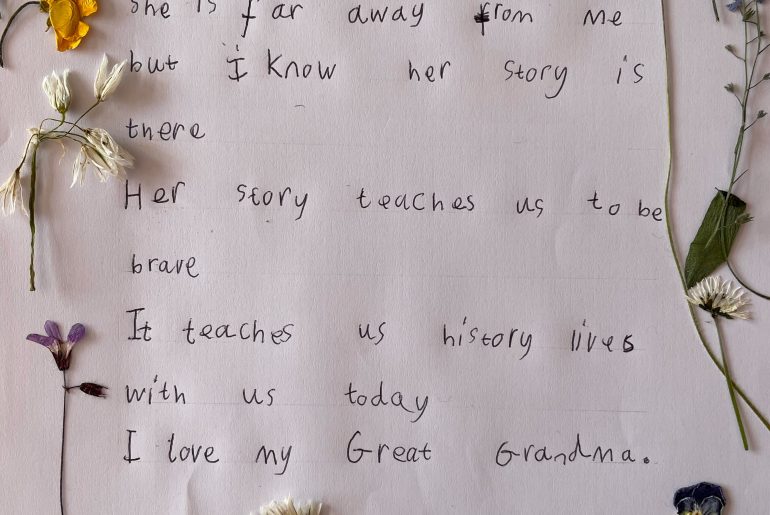 She is far away from me
but I know her story is
there
Her story teaches us to be
brave
It teaches us history lives
with us today
I love my Great Grandma.